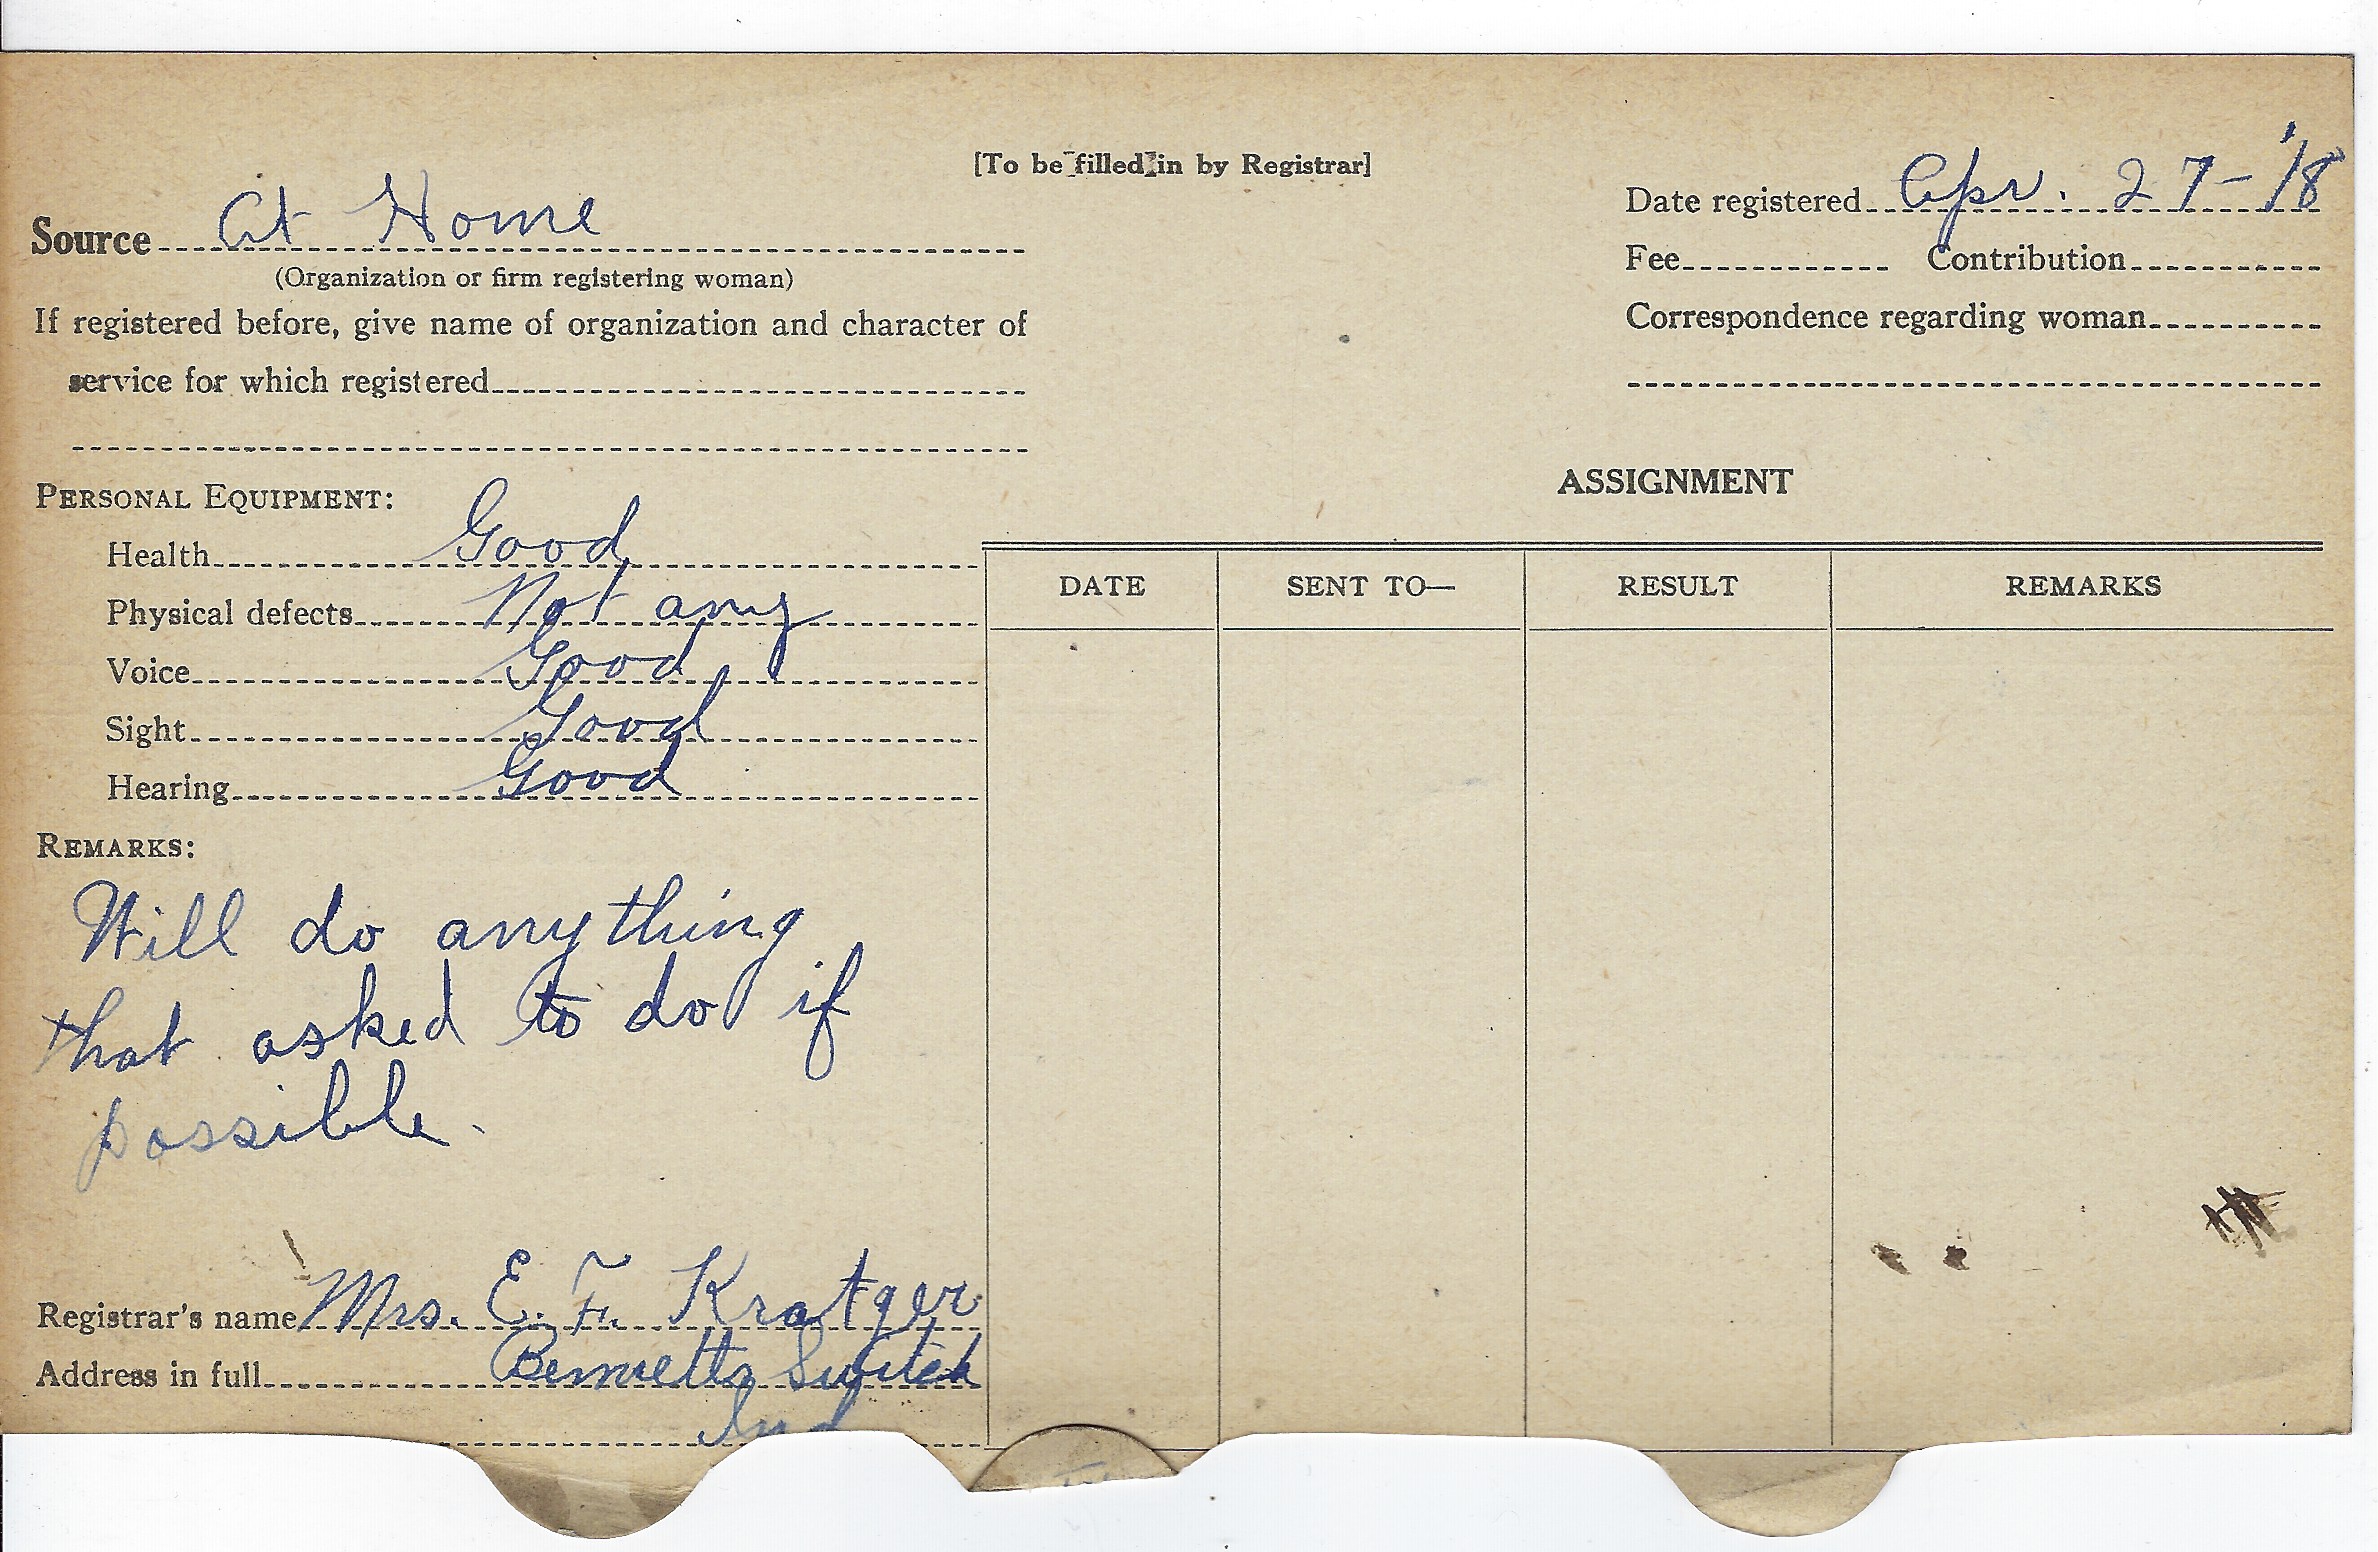 [To be filled in by Registrar]
Source At Home
(Organization or firm registering woman)
If registered before, give name of organization and character of
service for which registered
Date registered Apr. 27-'18
Fee Contribution
Correspondence regarding woman
PERSONAL EQUIPMENT:
Health Good
Physical defects Not any
Voice Good
Sight Good
Hearing Good
REMARKS:
Will do anything
that asked to do if
possible.
Registrar's name Mrs. E. F. Kratzer
Address in full Bennetts Switch
Ind
ASSIGNMENT
DATE SENT TO— RESULT REMARKS